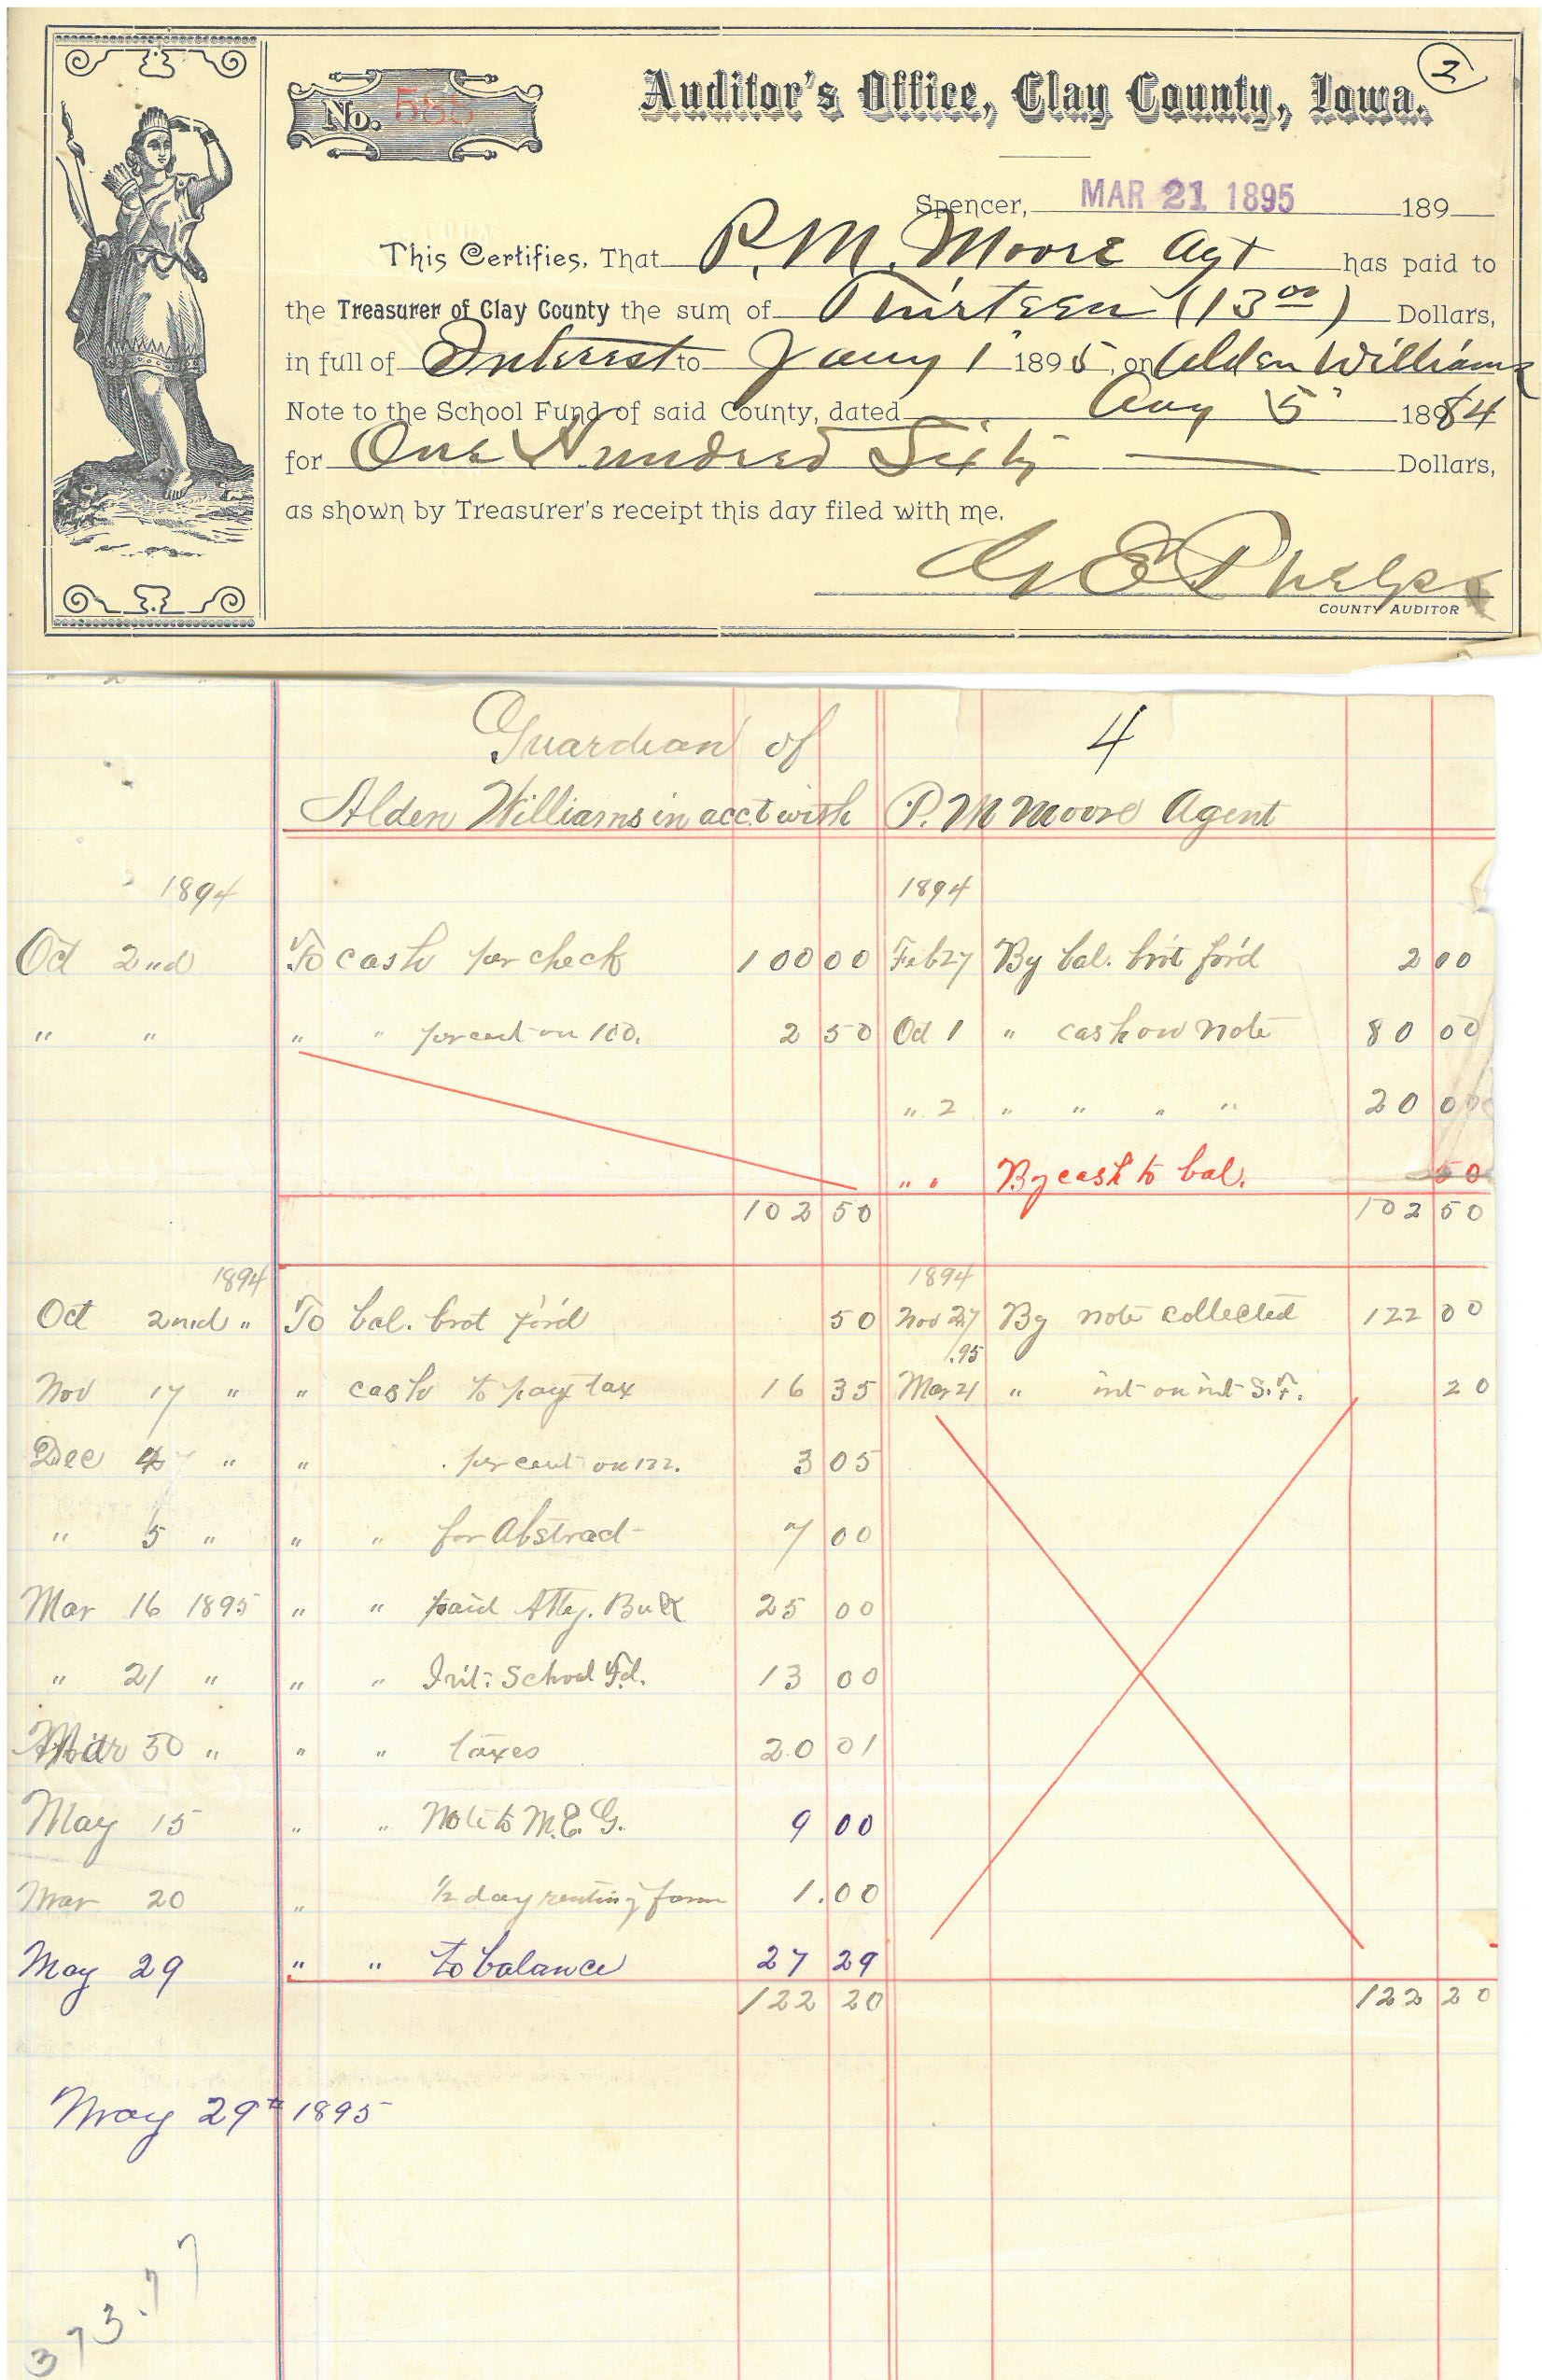 2
No. 588
Auditor's Office, Clay County, Iowa.
Spencer, MAR 21 1895 189
This Certifies, That P. M. Moore Agt has paid to
the Treasurer of Clay County the sum of Thirteen (13 00) Dollars,
in full of Interest to Jany 1 1895, on Alden Williams
Note to the School Fund of said County, dated Aug 5" 1884
for One Hundred Sixty Dollars,
as shown by Treasurer's receipt this day filed with me.
G E Phelps
COUNTY AUDITOR
Guardian of 4
Alden Williams in acc't with P. M Moore Agent
1894 1894
Oct 2nd To cash per check 100 00 Feb 27 By bal. bro't for'd 2 00
" " " " per cent on 100. 2 50 Oct 1 " cash on note 80 00
" 2 " " " " 20 00
" " By cash to bal. 50
102 50 102 50
1894 1894
Oct 2nd " To bal. brot for'd 50 Nov 27 By note collected 122 00
.95
Nov 17 " " cash to pay tax 16 35 Mar 21 " int on int S.F. 20
Dec " " per cent on 122. 3 05
" 5 " " " for Abstract 7 00
Mar 16 1895 " " paid Atty. Buck 25 00
" 21 " " " Int: School Fd. 13 00
Mar 30 " " " taxes 20 01
May 15 " " Note to M. E. G. 9 00
Mar 20 " 1/2 day renting farm 1.00
May 29 " " to balance 27 29
122 20 122 20
May 29th 1895
373.77